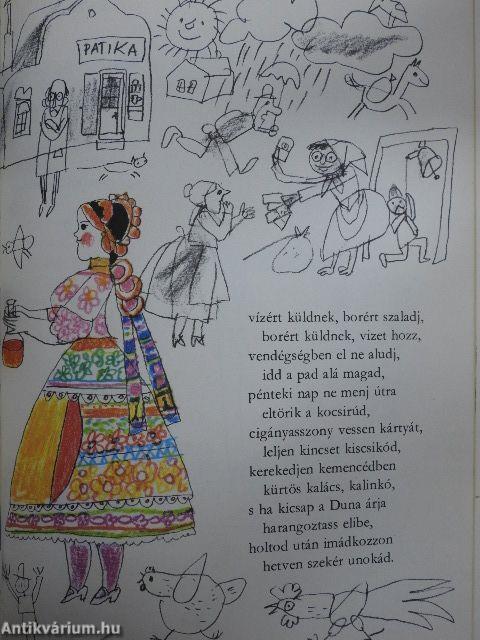 PATIKA
vízért küldnek, borért szaladj,
borért küldnek, vizet hozz,
vendégségben el ne aludj,
idd a pad alá magad,
pénteki nap ne menj útra
eltörik a kocsirúd,
cigányasszony vessen kártyát,
leljen kincset kiscsikód,
kerekedjen kemencédben
kürtös kalács, kalinkó,
s ha kicsap a Duna árja
harangoztass elibe,
holtod után imádkozzon
hetven szekér unokád.
Antikvárium.hu